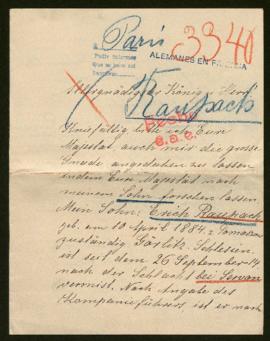 Paris
3340
Pedir informes
ALEMANES EN FRANCIA
Allergnädigster König u. Herr
Rauspach
Kniefällig bitte ich Eure
Majestät, auch mir die grosse
Gnade angedeihen zu lassen
indem Eure Majestät nach
meinem Sohn forschen lassen
Mein Sohn: Erich
geb. am 10 April 1884 z.
zuständig Görlitz Schlesien
ist seit dem 26 September 14
nach der Schlacht bei Servon
vermisst. Nach Angabe des
Kompanieführers ist er nach